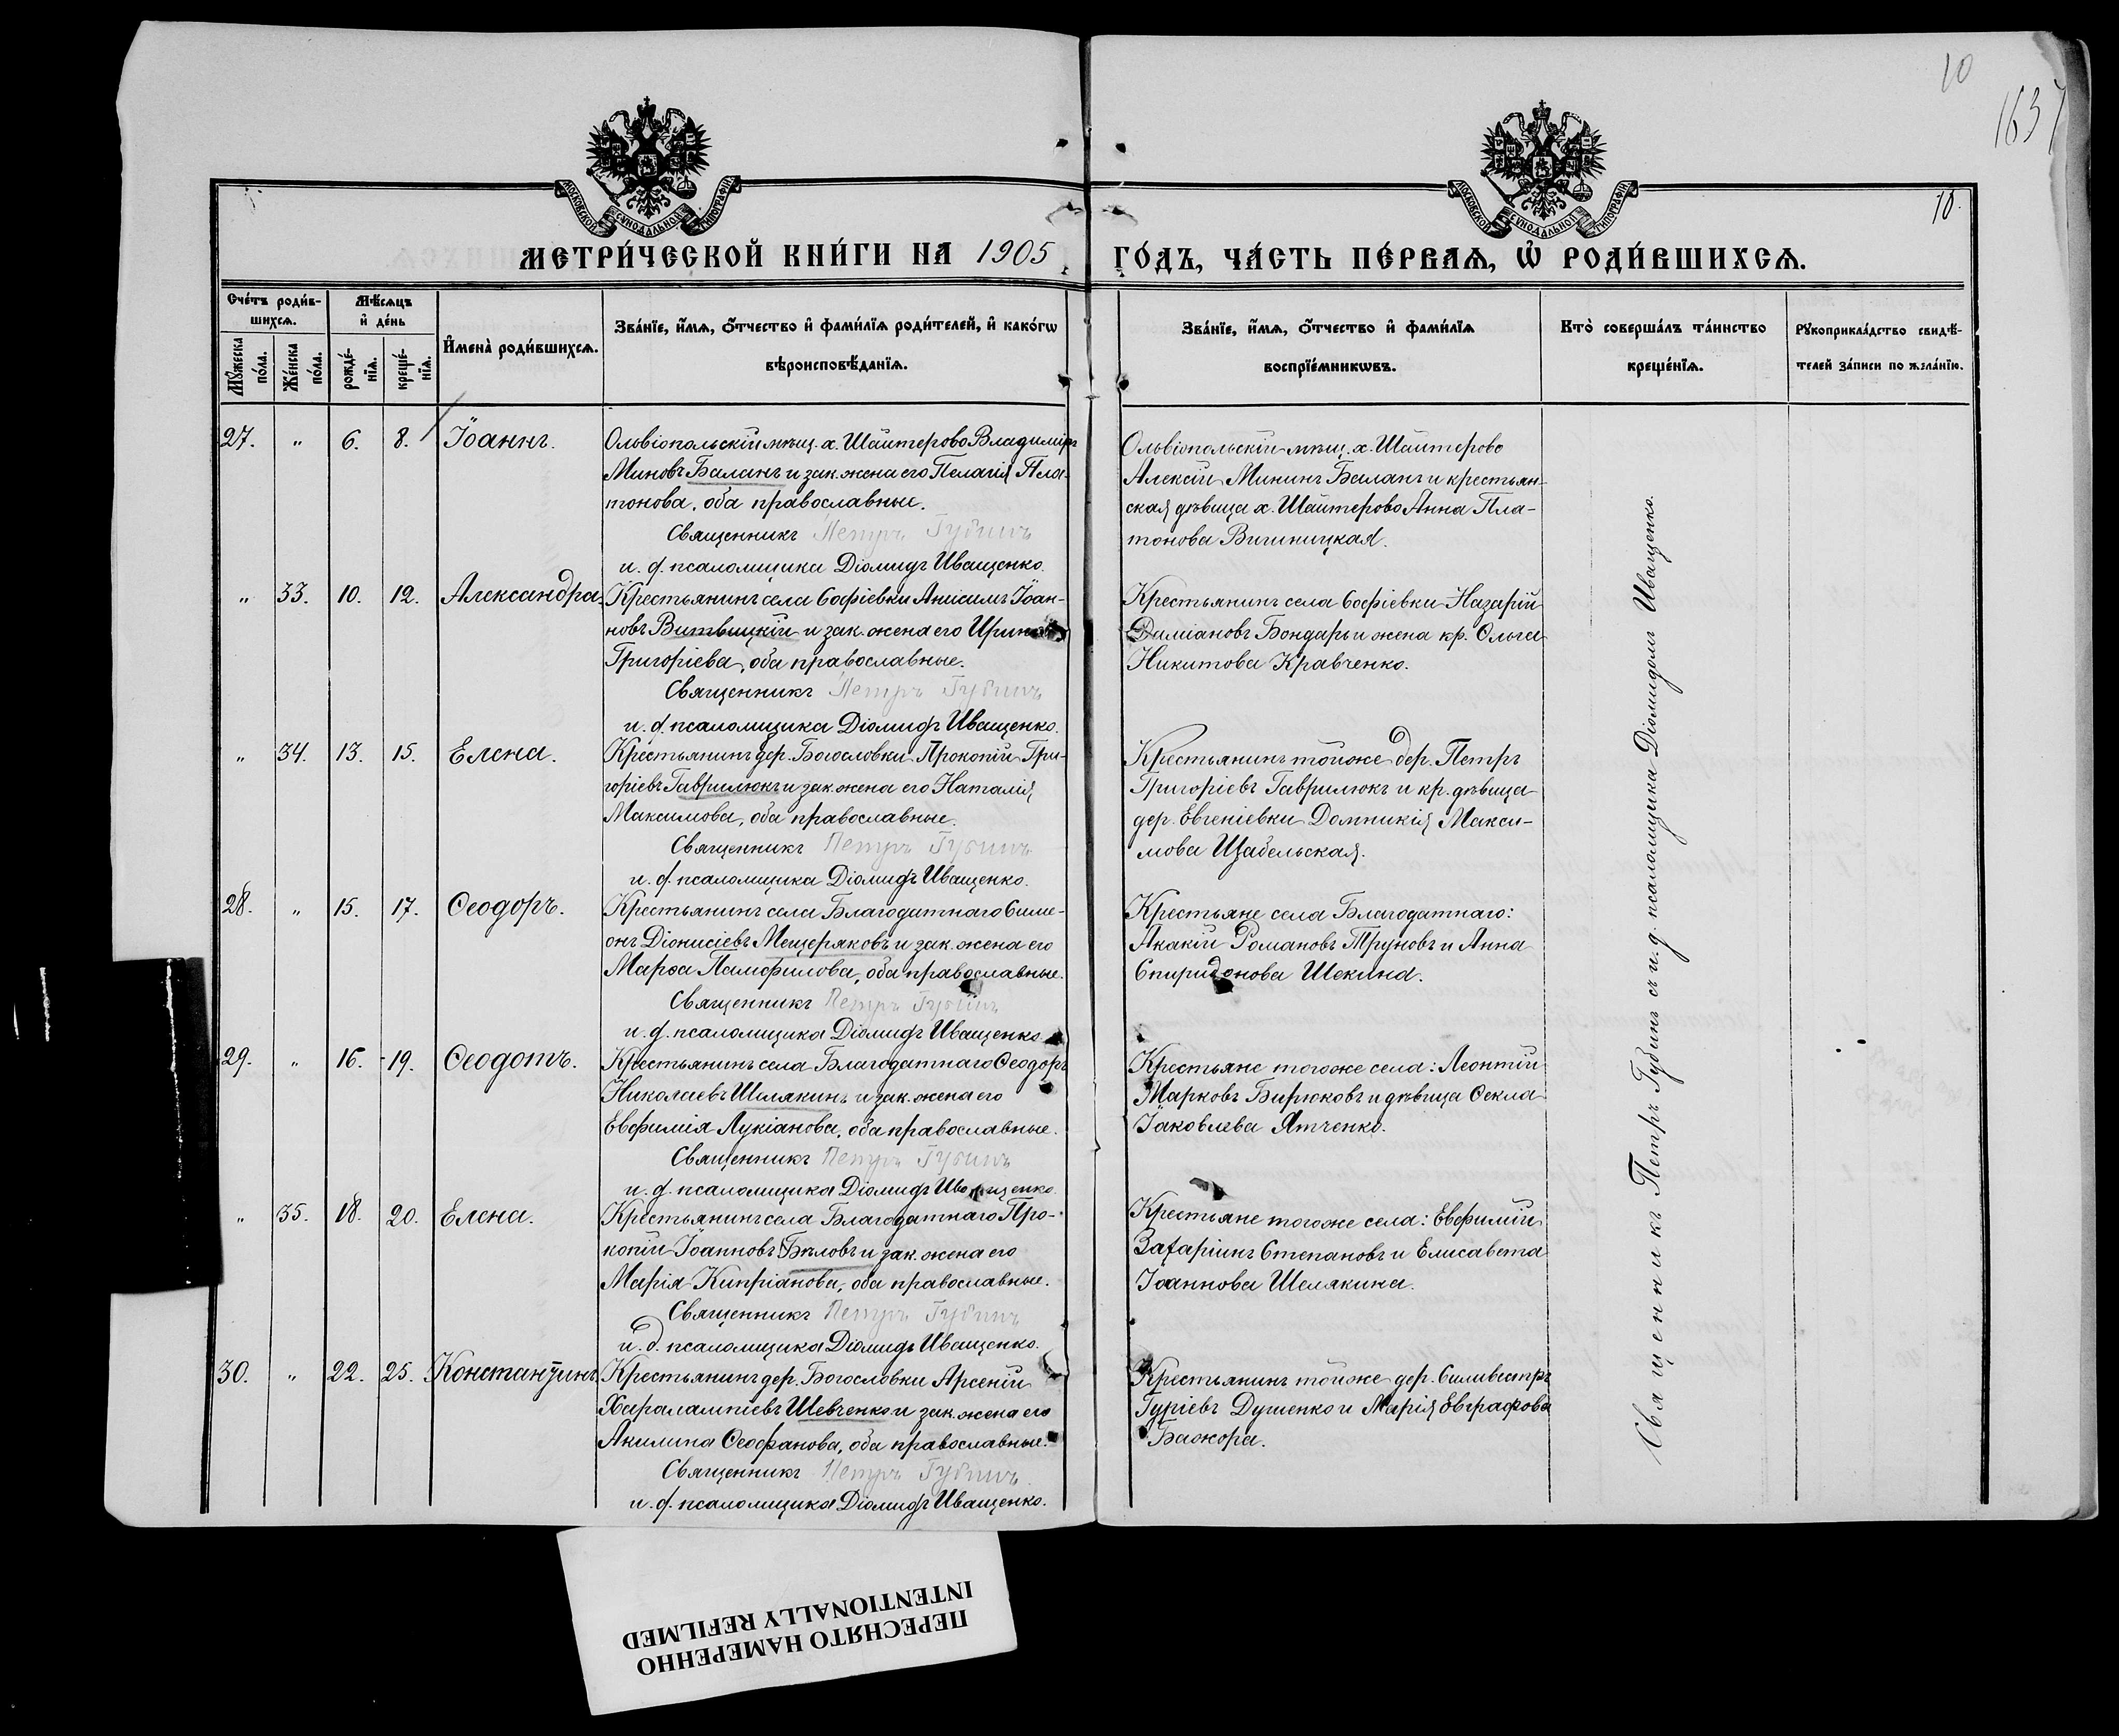 10
1637
МОСКОВСКОЙ СѴНОДАЛЬНОЙ ТИПОГРАФІИ
МОСКОВСКОЙ СѴНОДАЛЬНОЙ ТИПОГРАФІИ
10.
МЕТРИ́ЧЕСКОЙ КНИ́ГИ НА 1905 ГО́ДЪ, ЧА́СТЬ ПЕ́РВАѦ, Ѡ҆ РОДИ́ВШИХСѦ.
Сче́тъ роди́в-
шихсѧ.
Мѣ́сѧцъ
и҆ де́нь
Мꙋ́жеска по́ла.
Же́нска по́ла.
рожде́-нїѧ.
креще́-нїѧ.
И҆мена̀ роди́вшихсѧ.
Зва́нїе, и҆́мѧ, ѻ҆́тчество и҆ фами́лїѧ роди́телей, и҆ како́гѡ
вѣроисповѣ́данїѧ.
Зва́нїе, и҆́мѧ, ѻ҆́тчество и҆ фами́лїѧ
воспрїе́мникѡвъ.
Кто̀ соверша́лъ та́инство
креще́нїѧ.
Рꙋкоприкла́дство свидѣ́-
телей за́писи по жела́нїю.
27. " 6. 8. Іоаннъ. Ольвіопольскій мѣщ. х. Шайтерово Владиміръ
Миновъ Баланъ и зак. жена его Пелагія Пла-
тонова, оба православные.
Священникъ Петръ Губинъ
и. д. псаломщика Діомидъ Иващенко.
Ольвіопольскій мѣщ. х. Шайтерово
Алексій Мининъ Баланъ и крестьян-
ская дѣвица х. Шайтерово Анна Пла-
тонова Вишницкая.
" 33. 10. 12. Александра. Крестьянинъ села Софіевки Анисимъ Іоан-
новъ Витвицкій и зак. жена его Ирина
Григоріева, оба православные.
Священникъ Петръ Губинъ
и. д. псаломщика Діомидъ Иващенко.
Крестьянинъ села Софіевки Назарій
Даміановъ Бондарь и жена кр. Ольга
Никитова Кравченко.
" 34. 13. 15. Елена. Крестьянинъ дер. Богословки Прокопій Гри-
горіевъ Гаврилюкъ и зак. жена его Наталія
Максимова, оба православные.
Священникъ Петръ Губинъ
и. д. псаломщика Діомидъ Иващенко.
Крестьянинъ тойже дер. Петръ
Григоріевъ Гаврилюкъ и кр. дѣвица
дер. Евгеніевки Домникія Макси-
мова Щабельская.
28. " 15. 17. Ѳеодоръ. Крестьянинъ села Благодатнаго Симе-
онъ Діонисіевъ Мещеряковъ и зак. жена его
Марѳа Памфилова, оба православные.
Священникъ Петръ Губинъ
и. д. псаломщика Діомидъ Иващенко.
Крестьяне села Благодатнаго:
Акакій Романовъ Труновъ и Анна
Спиридонова Шекина.
29. " 16. 19. Ѳеодотъ. Крестьянинъ села Благодатнаго Ѳеодоръ
Николаевъ Шелякинъ и зак. жена его
Евфимія Лукіанова, оба православные.
Священникъ Петръ Губинъ
и. д. псаломщика Діомидъ Иващенко.
Крестьяне тогоже села: Леонтій
Марковъ Бирюковъ и дѣвица Ѳекла
Іаковлева Ятченко.
" 35. 18. 20. Елена. Крестьянинъ села Благодатнаго Про-
копій Іоанновъ Бѣловъ и зак. жена его
Марія Кипріанова, оба православные.
Священникъ Петръ Губинъ
и. д. псаломщика Діомидъ Иващенко.
Крестьяне тогоже села: Евфимій
Захаріинъ Степановъ и Елисавета
Іоаннова Шелякина.
30. " 22. 25. Константинъ. Крестьянинъ дер. Богословки Арсеній
Харалампіевъ Шевченко и зак. жена его
Акилина Ѳеофанова, оба православные.
Священникъ Петръ Губинъ
и. д. псаломщика Діомидъ Иващенко.
Крестьянинъ тойже дер. Силивестръ
Гуріевъ Душенко и Марія Евграфова
Бажора.
Священникъ Петръ Губинъ съ и. д. псаломщика Діомидомъ Иващенко.
ПЕРЕСНЯТО НАМЕРЕННО
INTENTIONALLY REFILMED